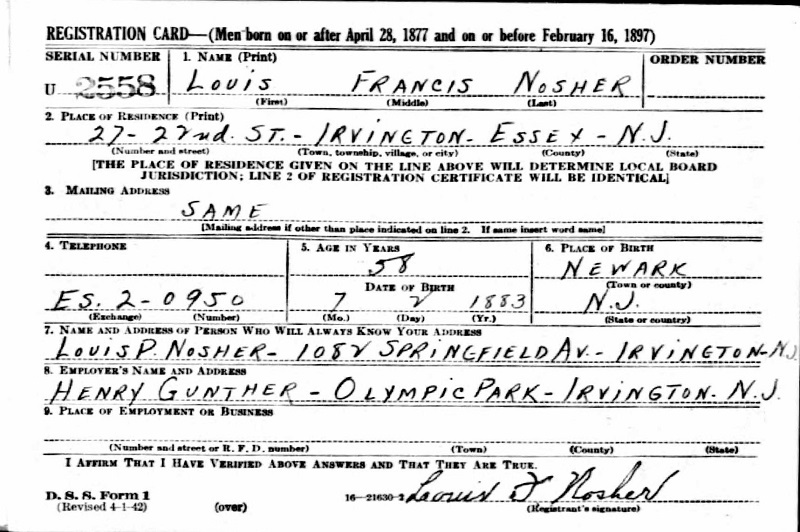 REGISTRATION CARD—(Men born on or after April 28, 1877 and on or before February 16, 1897)
SERIAL NUMBER 1. NAME (Print) ORDER NUMBER
U 2558 LOUIS FRANCIS NOSHER
(First) (Middle) (Last)
2. PLACE OF RESIDENCE (Print)
27- 22nd. ST.- IRVINGTON- ESSEX- N.J.
(Number and street) (Town, township, village, or city) (County) (State)
[THE PLACE OF RESIDENCE GIVEN ON THE LINE ABOVE WILL DETERMINE LOCAL BOARD
JURISDICTION; LINE 2 OF REGISTRATION CERTIFICATE WILL BE IDENTICAL]
3. MAILING ADDRESS
SAME
[Mailing address if other than place indicated on line 2. If same insert word same]
4. TELEPHONE 5. AGE IN YEARS 6. PLACE OF BIRTH
58 NEWARK
DATE OF BIRTH (Town or county)
ES. 2-0950 7 2 1883 N.J.
(Exchange) (Number) (Mo.) (Day) (Yr.) (State or country)
7. NAME AND ADDRESS OF PERSON WHO WILL ALWAYS KNOW YOUR ADDRESS
LOUIS P. NOSHER- 1082 SPRINGFIELD AV.- IRVINGTON-N.J.
8. EMPLOYER'S NAME AND ADDRESS
HENRY GUNTHER - OLYMPIC PARK- IRVINGTON- N.J.
9. PLACE OF EMPLOYMENT OR BUSINESS
(Number and street or R. F. D. number) (Town) (County) (State)
I AFFIRM THAT I HAVE VERIFIED ABOVE ANSWERS AND THAT THEY ARE TRUE.
D. S. S. Form 1 16—21630-2 Louis F Nosher
(Revised 4-1-42) (over) (Registrant's signature)